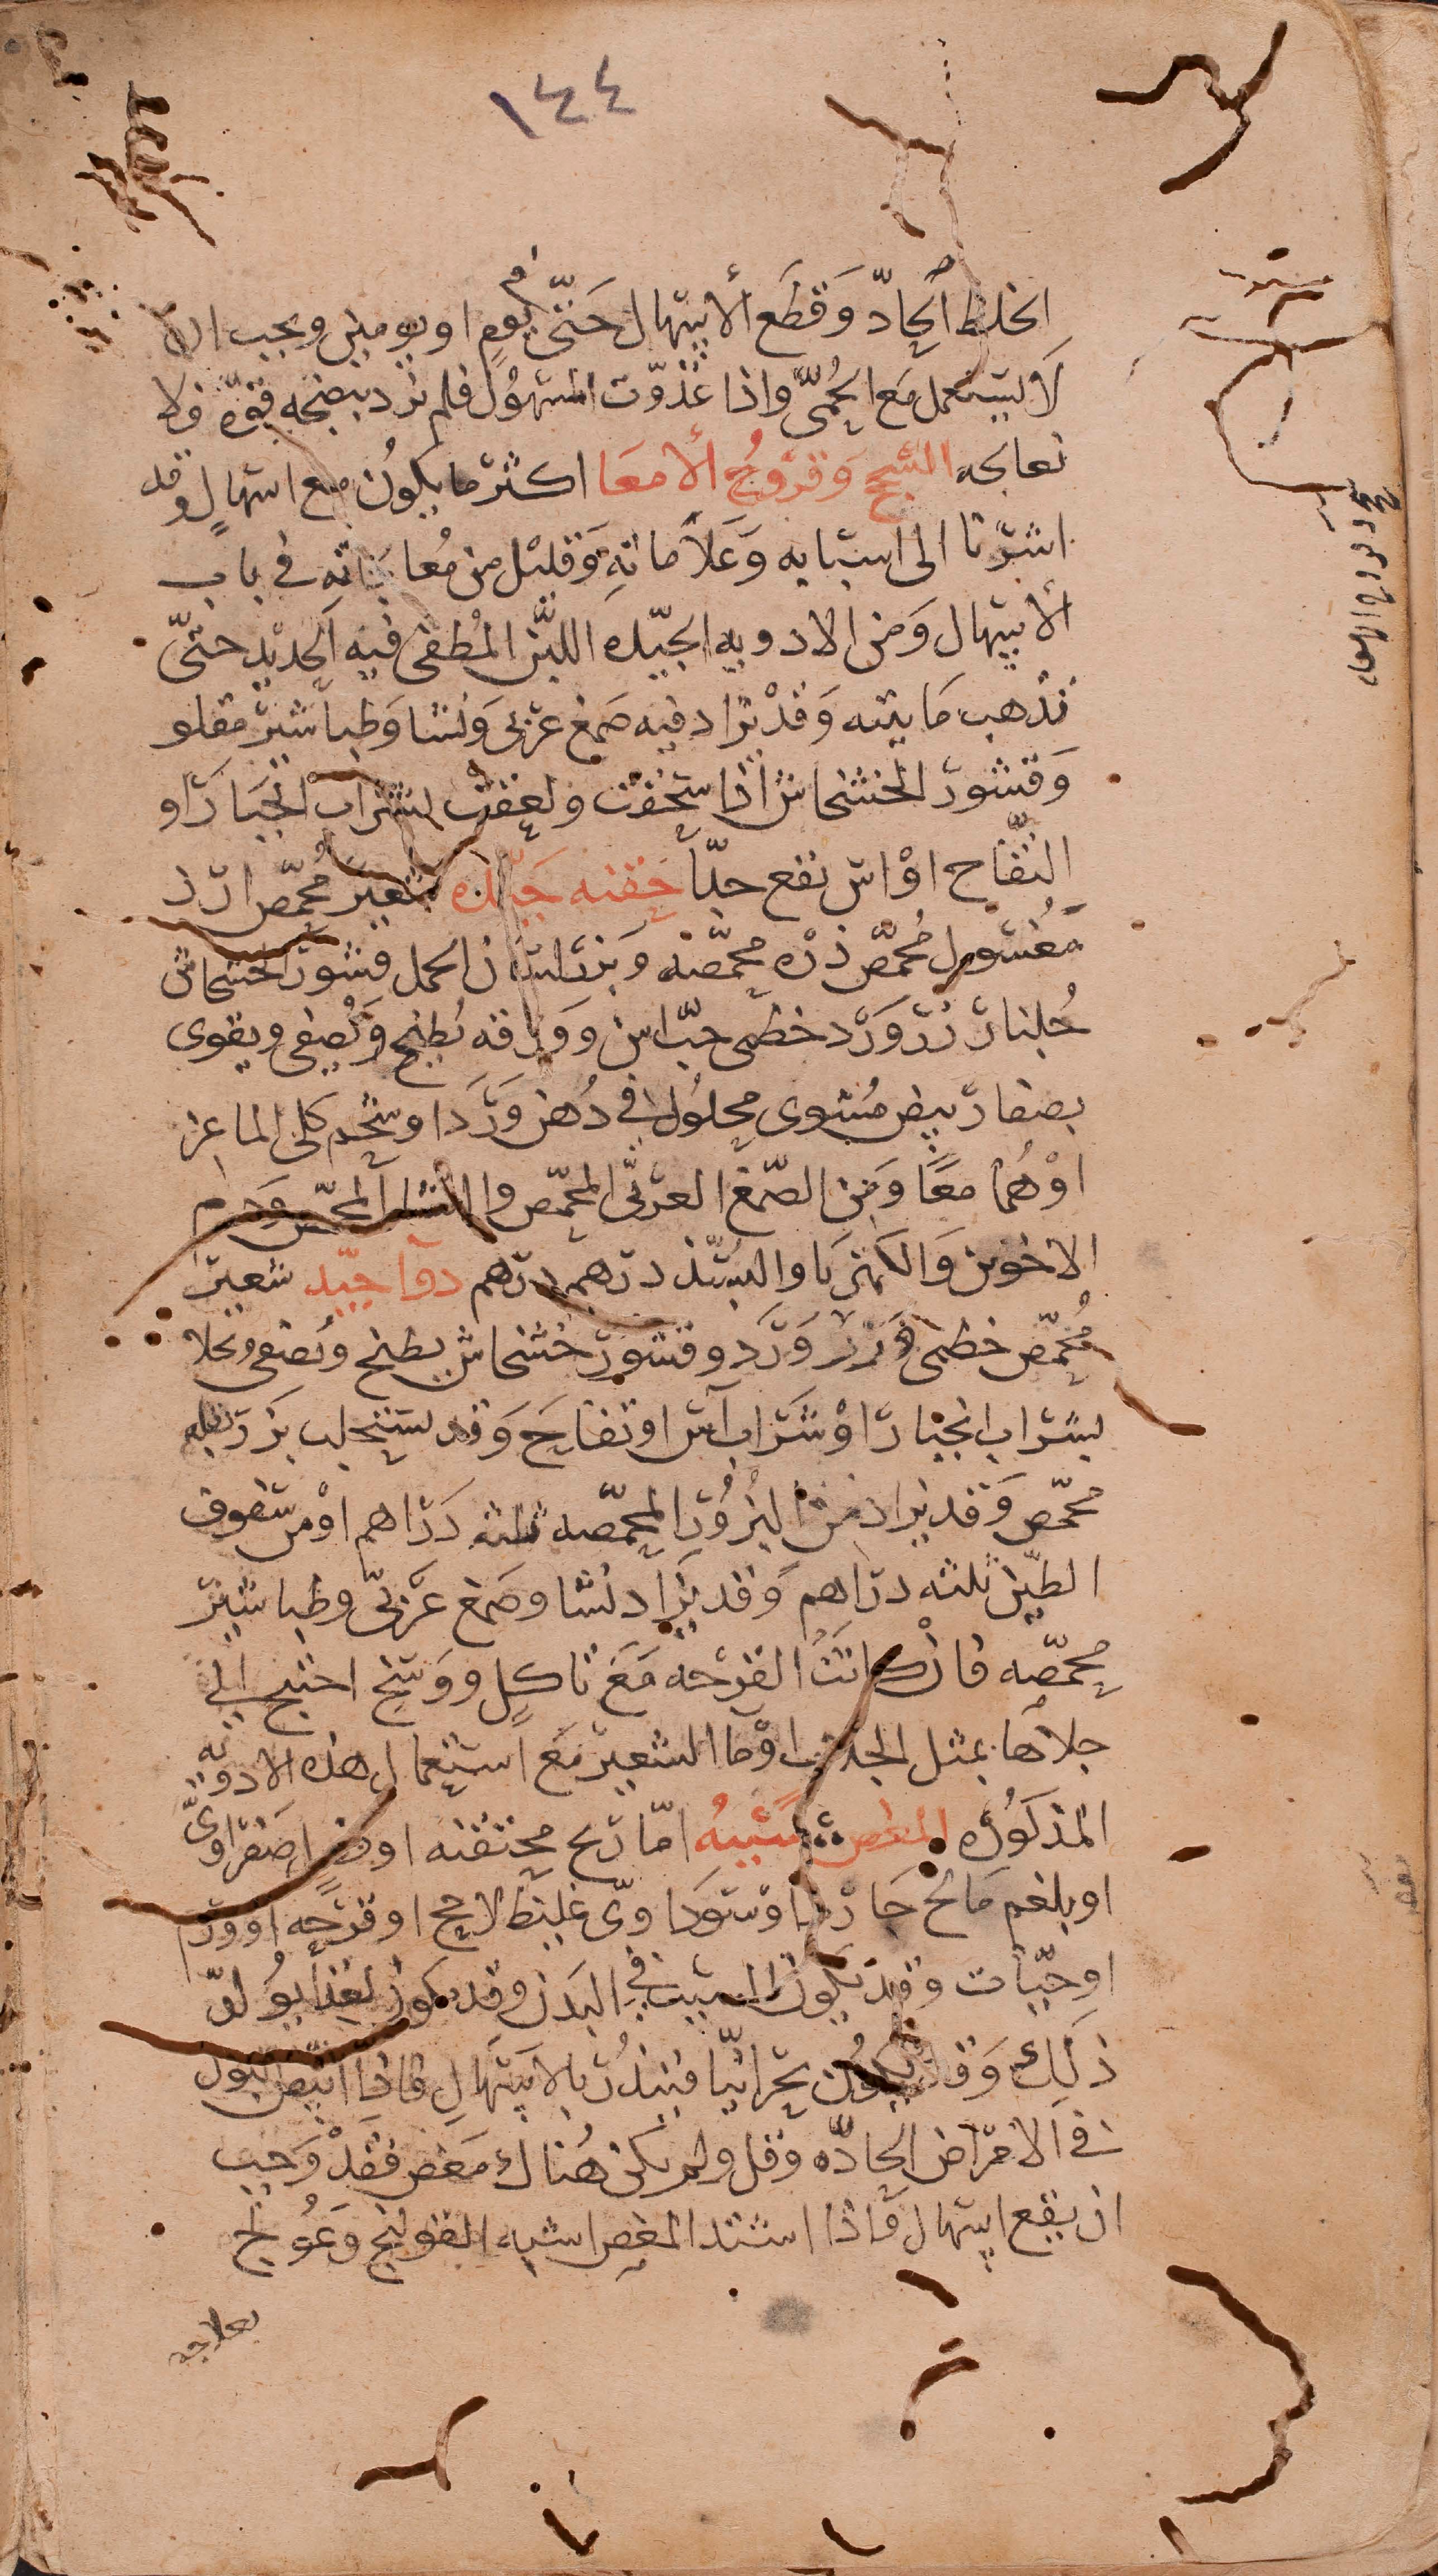 ١٤٤
الخلط الحادّ وَقطَع ألاسهال حَتّى يوم او يومين ويجب ان
لا يستعمل مَع الحُمىّ واذا غذوّت المسهُول فلم تزد نبضه قوّه فلا
تعالجه السَّحج وَقرُوحُ ألامعَا اكثر ما يكوُن مع اسهالٍ وقد
اشرنا الى اسبابه وَعَلاماته وَقليْل من مُعالجاته في باب
ألاسهال وَمن الادويه الجيّده اللبَن المُطفى فيه الحديد حتىّ
تذهب مَايته وَقدْ يزاد فيه صَمغ عَربى وَنشا وَطباشير مقلو
وَقشور الخشخاش اذا سحقت ولعقت بشراب انجبَار او
التفّاح اوْ اس نفع جدّاً حقنه جَيّده شعير مُحمّص ارز
مَغسُول مُحمّص ذره محمّصه وَبزر لسان الحمل قشور الخشخاش
جُلنار زرّ وَرْد خطمى حبّ اس وورقه يُطبخ وَيُصفى ويقوى
بصفار بيض مشوى محلوُل في دُهن وَرْد او شحم كلى الماعز
اوْ هُما معًا وَمن الصّمغ العربّى المحمّص والنشا المحمّص وَدم
الاخوين وَالكهربَا والبسّد درهم درهم دوآ جيّد شعير
مُحمّص خطمى زر وَرْد وقشور خشخاش يطبخ ويُصفى ويحلا
بشراب انجبار اوْ شَراب آس او تفاح وَقد يستحلب بزر بقله
محمّص وَقد يزاد من البزُور المحمّصه ثلثه دَراهم اوْ من سفوف
الطيّن ثلثه دراهم وَقد يزَاد نشا وصَمغ عَربّى وطباشير
محمّصه فان كانتَ القرْحه مَعَ تاكلٍ ووَسخ احتيج الى
جلاها بمثل الجلاب اوْ ما الشعير مَع استعمال هذه الادويه
المذكوُره المغص سَببُه امّا ريح محتقنه او مرار صَفراوىّ
او بلغم مَالح حَار اوْ سَودَاوىّ غليظ لاحج او قرحَه او ورم
او حيّات وقد يكون السبب في البَدن وقد يكون لغذا يوُلّد
ذلك وَقد يكوُن بحرانيّا فينذُر بالاسهَال فاذا ابيضّ البَول
في الامرَاض الحادّه وقل ولم يكن هُناك مَغص فقدْ وَجب
ان يقع اسهال فاذا اشتد المغص اشبه القولنج وَعُولج
بعلاجه